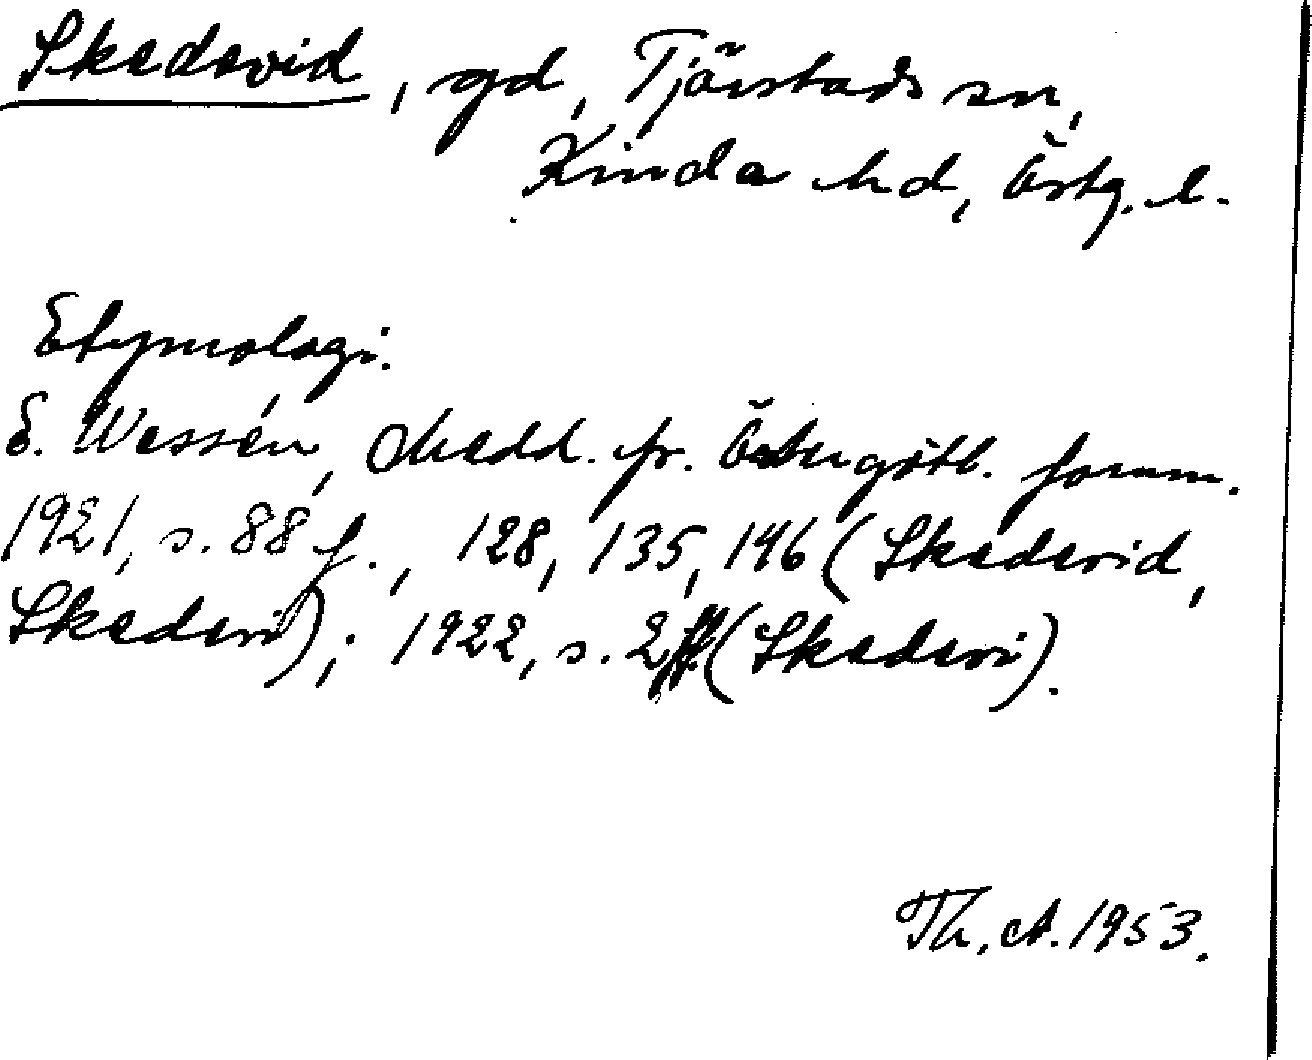 Skedevid, gd, Tjärstads sn,
Kinda hd, Östg. l.
Etymologi.
E. Wessén, Medd. fr. Östergötl. fornm.
1921, s. 88 f., 128, 135, 146 (Skedevid,
Skedevi); 1922, s. 2 ff. (Skedevi).
Th. A. 1953.